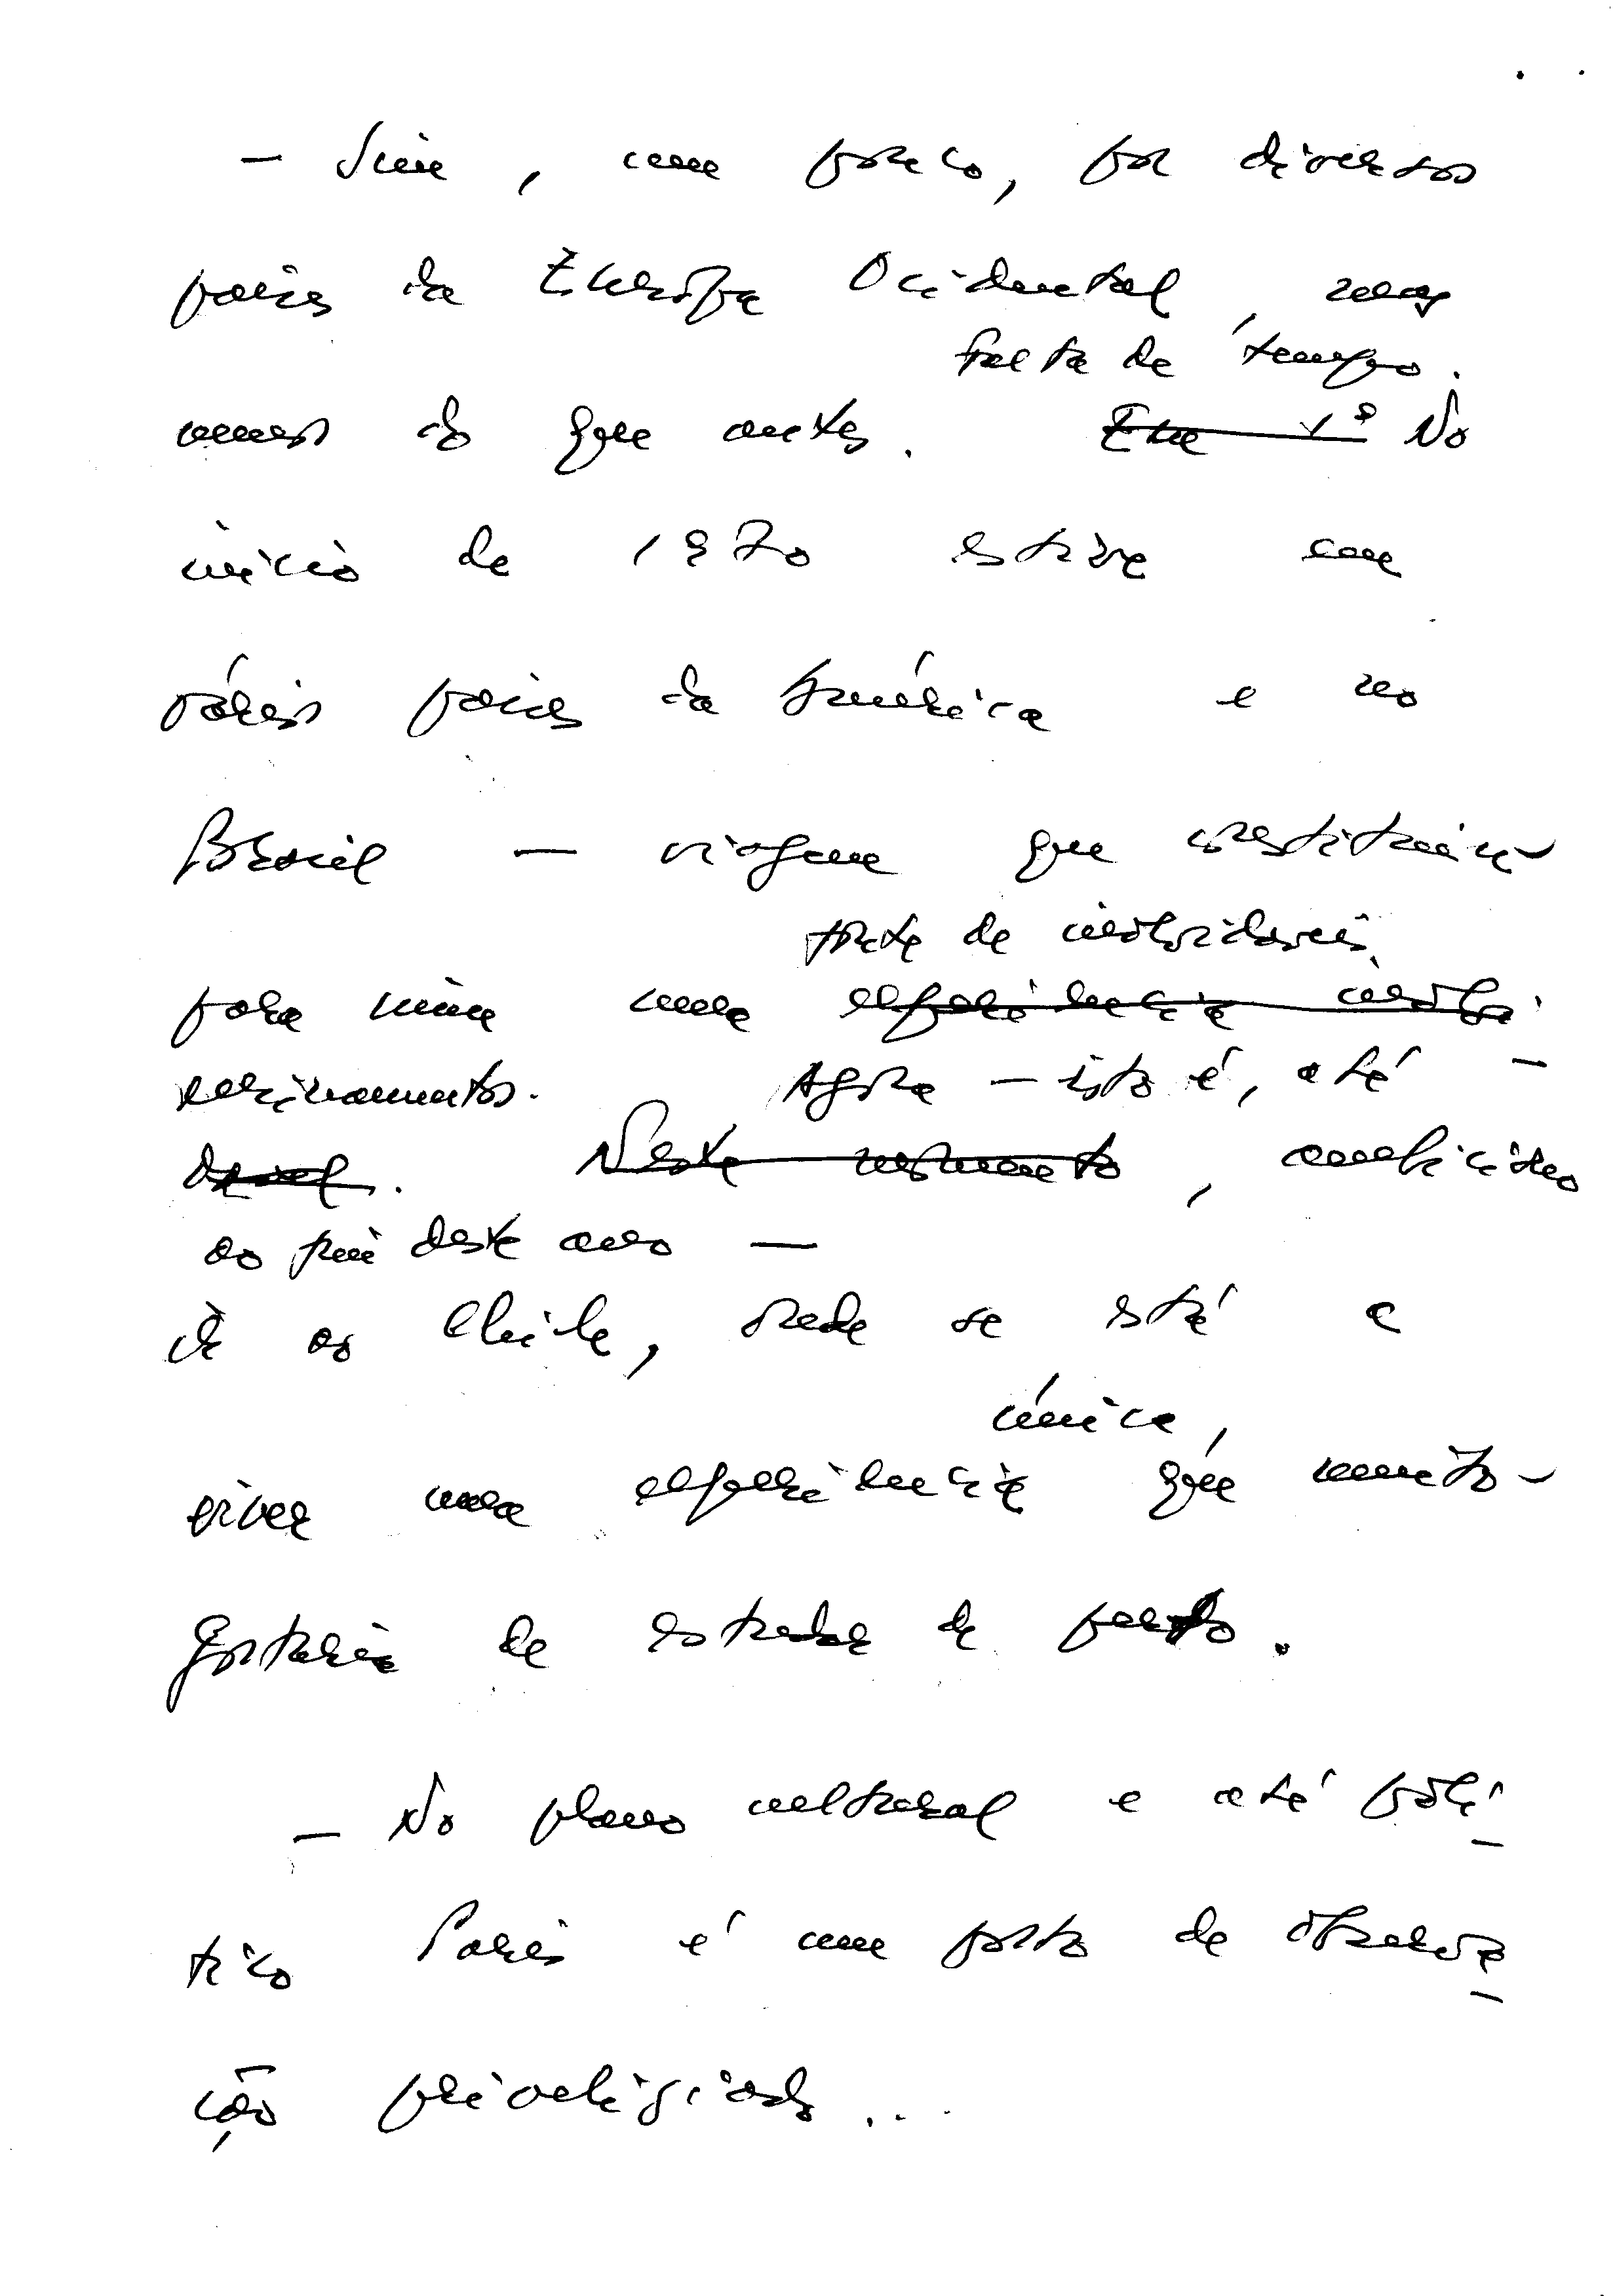 — Sim, um pouco, por diversos
países da Europa Ocidental, mas
falta de tempo.
menos do que antes. Em 1º No
início de 1970 estive em
vários países da América e no
Brasil — viagem que constituiu
fonte de inolvidáveis
para mim uma experiência inolvi-
ensinamentos. Agora — isto é, até
dável. Neste momento, ambiciono
ao fim deste ano —
ir ao Chile, onde se está a
única,
viver uma experiência que muito
gostaria de estudar de perto.
— No plano cultural e até polí-
tico Paris é um posto de observa-
ção privilegiado...